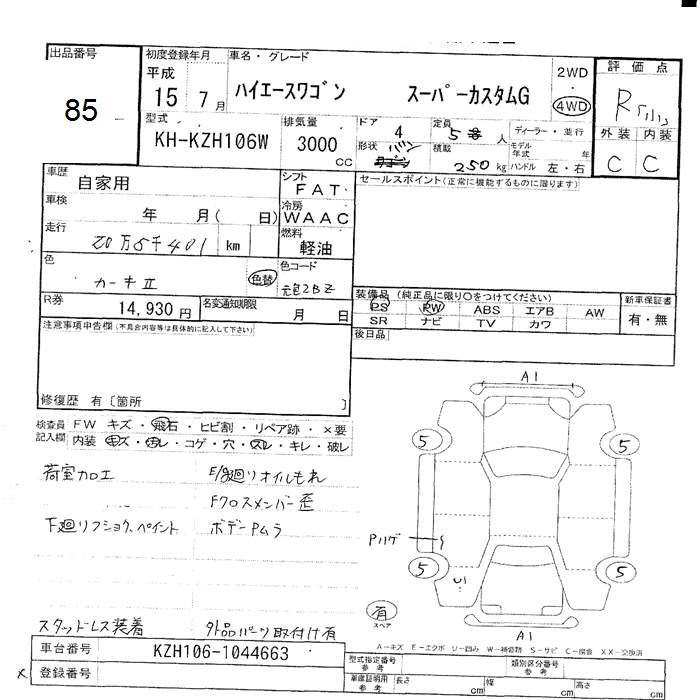 出品番号
85
初度登録年月
平成
15 7月
車名・グレード
ハイエースワゴン スーパーカスタムG
2WD
4WD
評価点
R
外装 内装
C C
型式
KH-KZH106W
排気量
3000 CC
ドア 4
形状 バン
ワゴン
定員 5 人
積載 250 kg
ディーラー・並行
モデル年式 年
ハンドル 左・右
車歴
自家用
シフト FAT
車検
年 月( 日)
冷房 WAAC
走行
20万5千401 km
燃料 軽油
色
カーキII
色替
色コード
元色2BZ
R券 14,930円
名変通知期限 月 日
セールスポイント(正常に機能するものに限ります)
装備品(純正品に限り〇をつけてください)
PS PW ABS エアB AW
SR ナビ TV カワ
新車保証書
有・無
後日品
注意事項申告欄(不具合内容等は具体的に記入して下さい)
修復歴 有〔箇所 〕
検査員記入欄
FW キズ・飛石・ヒビ割・リペア跡・×要
内装 キズ・汚レ・コゲ・穴・スレ・キレ・破レ
荷室加工 E/g廻りオイルもれ
Fクロスメンバー歪
下廻リフショク、ペイント ボデーPムラ
スタッドレス装着 外品パーツ取付け有
A1
5
5
Pハゲ
5
5
U1
有
スペア
A1
A-キズ E-エクボ U-凹み W-補修跡 S-サビ C-腐食 XX-交換済
車台番号 KZH106-1044663
× 登録番号
型式指定番号
参考
類別区分番号
参考
車庫証明用
参考
長さ cm 幅 cm 高さ cm